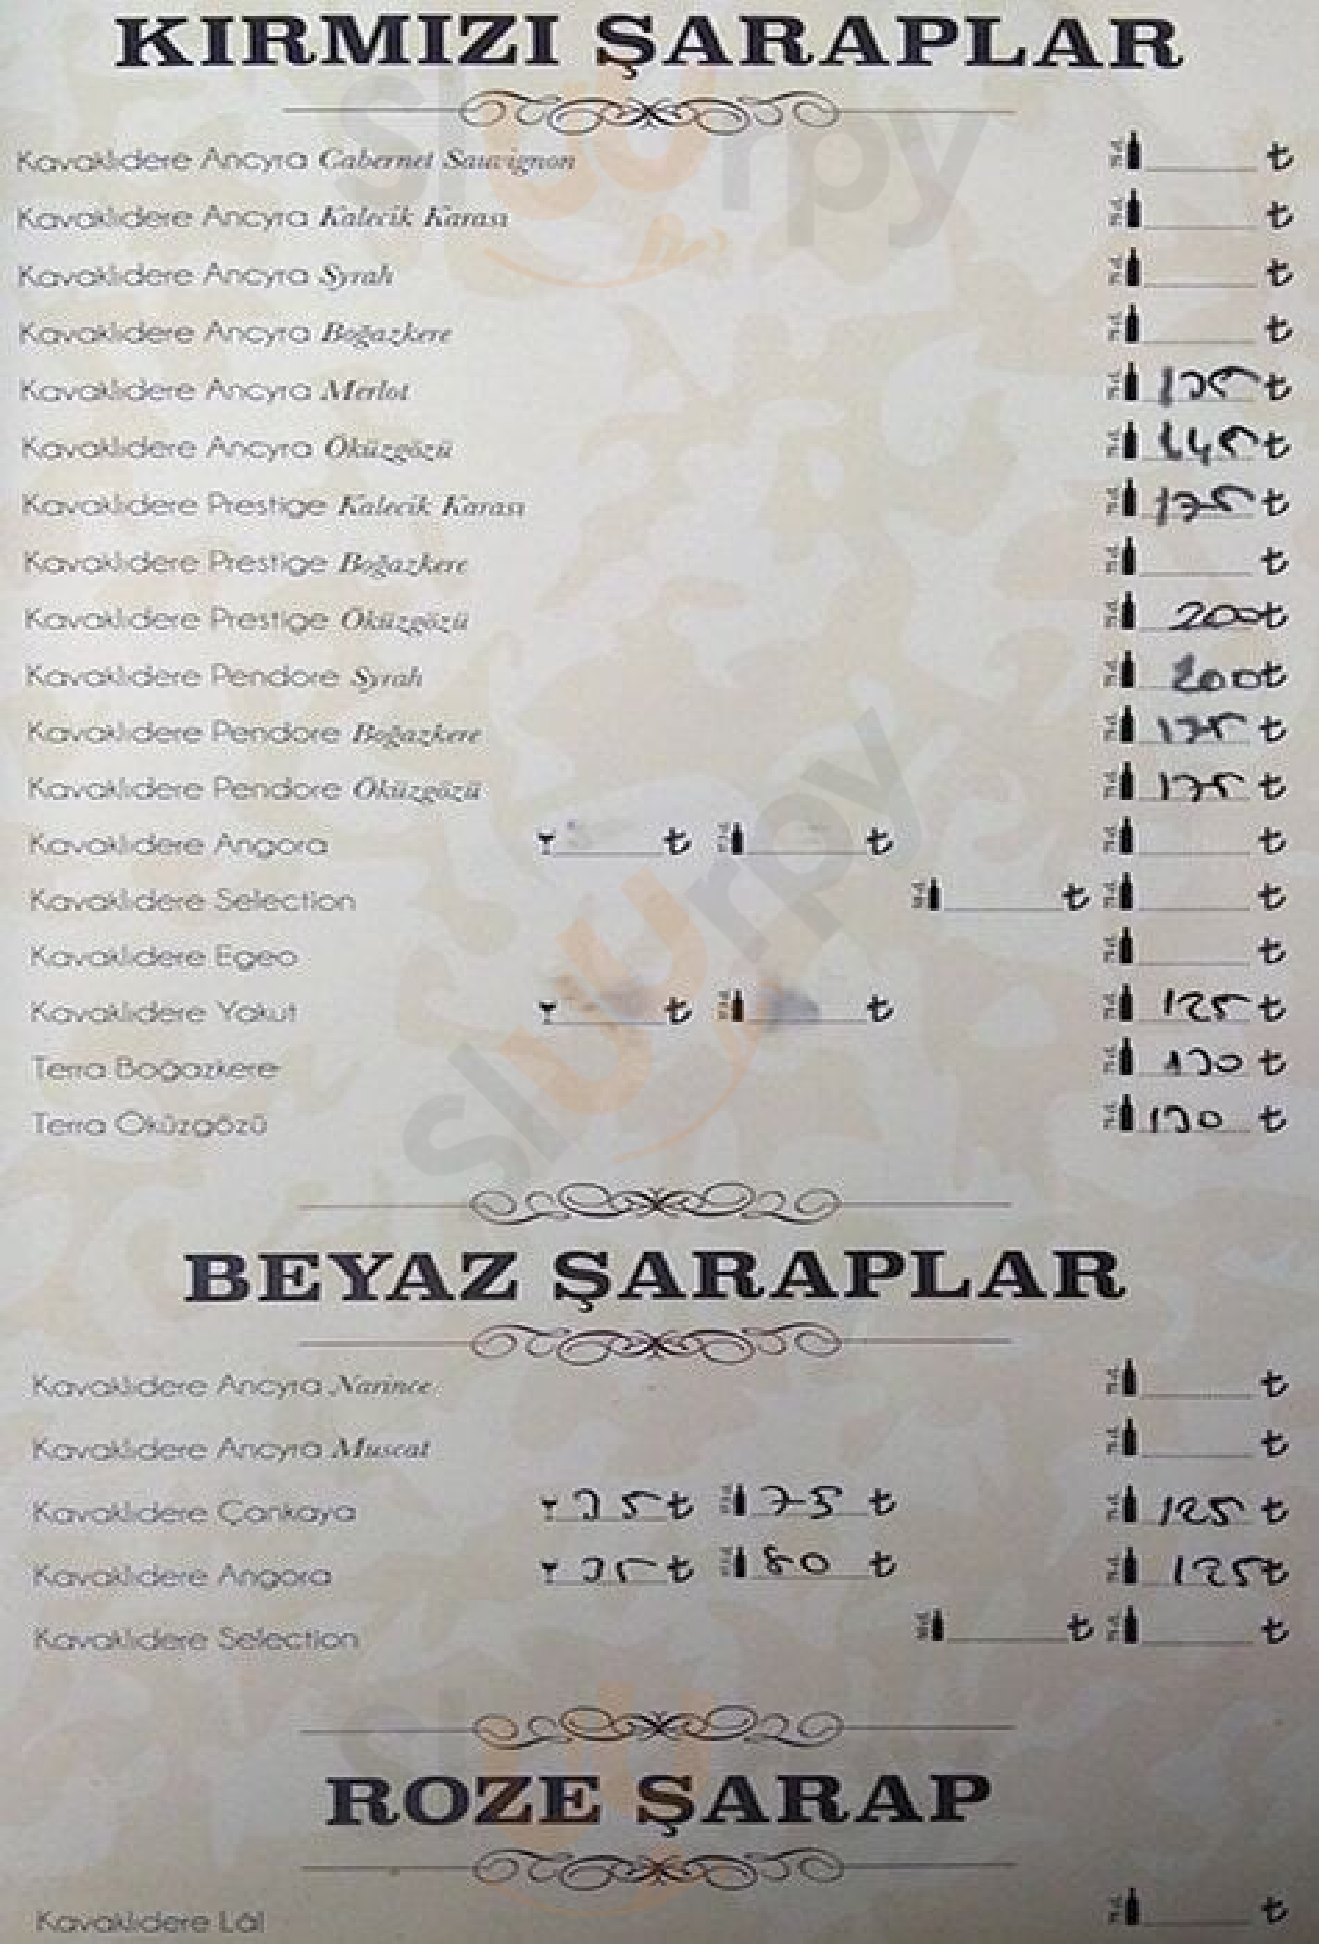 KIRMIZI ŞARAPLAR
Kavaklıdere Ancyra Cabernet Sauvignon 75 cl. ₺
Kavaklıdere Ancyra Kalecik Karası 75 cl. ₺
Kavaklıdere Ancyra Syrah 75 cl. ₺
Kavaklıdere Ancyra Boğazkere 75 cl. ₺
Kavaklıdere Ancyra Merlot 75 cl. ₺
Kavaklıdere Ancyra Öküzgözü 75 cl. 145 ₺
Kavaklıdere Prestige Kalecik Karası 75 cl. 175 ₺
Kavaklıdere Prestige Boğazkere 75 cl. ₺
Kavaklıdere Prestige Öküzgözü 75 cl. 200 ₺
Kavaklıdere Pendore Syrah 75 cl. 200 ₺
Kavaklıdere Pendore Boğazkere 75 cl. 175 ₺
Kavaklıdere Pendore Öküzgözü 75 cl. 175 ₺
Kavaklıdere Angora ₺ ₺ 75 cl. ₺
Kavaklıdere Selection ₺ 75 cl. ₺
Kavaklıdere Egeo 75 cl. ₺
Kavaklıdere Yakut ₺ ₺ 75 cl. 125 ₺
Terra Boğazkere 75 cl. 130 ₺
Terra Öküzgözü 75 cl. 130 ₺
BEYAZ ŞARAPLAR
Kavaklıdere Ancyra Narince 75 cl. ₺
Kavaklıdere Ancyra Muscat 75 cl. ₺
Kavaklıdere Çankaya 35 ₺ 75 ₺ 75 cl. 125 ₺
Kavaklıdere Angora 35 ₺ 80 ₺ 75 cl. 125 ₺
Kavaklıdere Selection ₺ 75 cl. ₺
ROZE ŞARAP
Kavaklıdere Lâl 75 cl. ₺
Slurpy
Slurpy
Slurpy